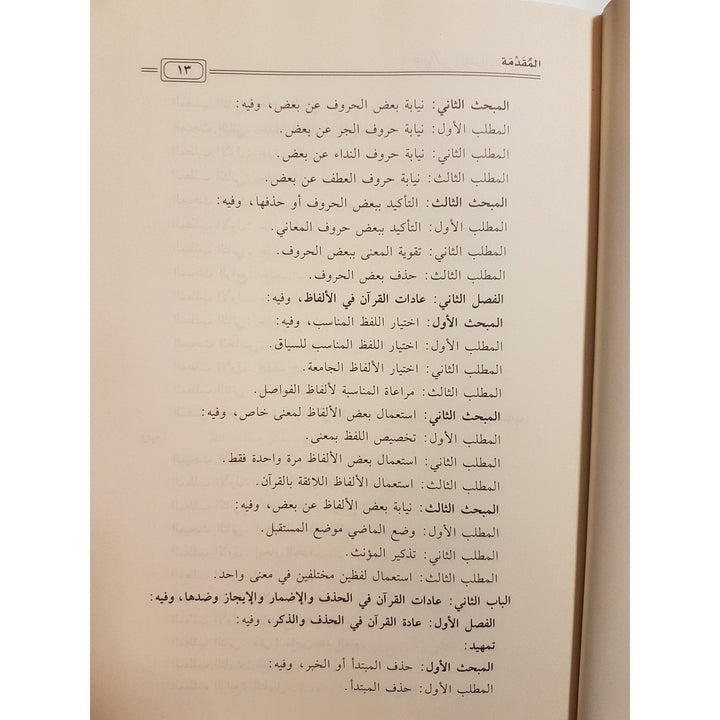 المُقَدِّمَة
١٣
المبحث الثاني: نيابة بعض الحروف عن بعض، وفيه:
المطلب الأول: نيابة حروف الجر عن بعض.
المطلب الثاني: نيابة حروف النداء عن بعض.
المطلب الثالث: نيابة حروف العطف عن بعض.
المبحث الثالث: التأكيد ببعض الحروف أو حذفها، وفيه:
المطلب الأول: التأكيد ببعض حروف المعاني.
المطلب الثاني: تقوية المعنى ببعض الحروف.
المطلب الثالث: حذف بعض الحروف.
الفصل الثاني: عادات القرآن في الألفاظ، وفيه:
المبحث الأول: اختيار اللفظ المناسب، وفيه:
المطلب الأول: اختيار اللفظ المناسب للسياق.
المطلب الثاني: اختيار الألفاظ الجامعة.
المطلب الثالث: مراعاة المناسبة لألفاظ الفواصل.
المبحث الثاني: استعمال بعض الألفاظ لمعنى خاص، وفيه:
المطلب الأول: تخصيص اللفظ بمعنى.
المطلب الثاني: استعمال بعض الألفاظ مرة واحدة فقط.
المطلب الثالث: استعمال الألفاظ اللائقة بالقرآن.
المبحث الثالث: نيابة بعض الألفاظ عن بعض، وفيه:
المطلب الأول: وضع الماضي موضع المستقبل.
المطلب الثاني: تذكير المؤنث.
المطلب الثالث: استعمال لفظين مختلفين في معنى واحد.
الباب الثاني: عادات القرآن في الحذف والإضمار والإيجاز وضدها، وفيه:
الفصل الأول: عادة القرآن في الحذف والذكر، وفيه:
تمهيد:
المبحث الأول: حذف المبتدأ أو الخبر، وفيه:
المطلب الأول: حذف المبتدأ.